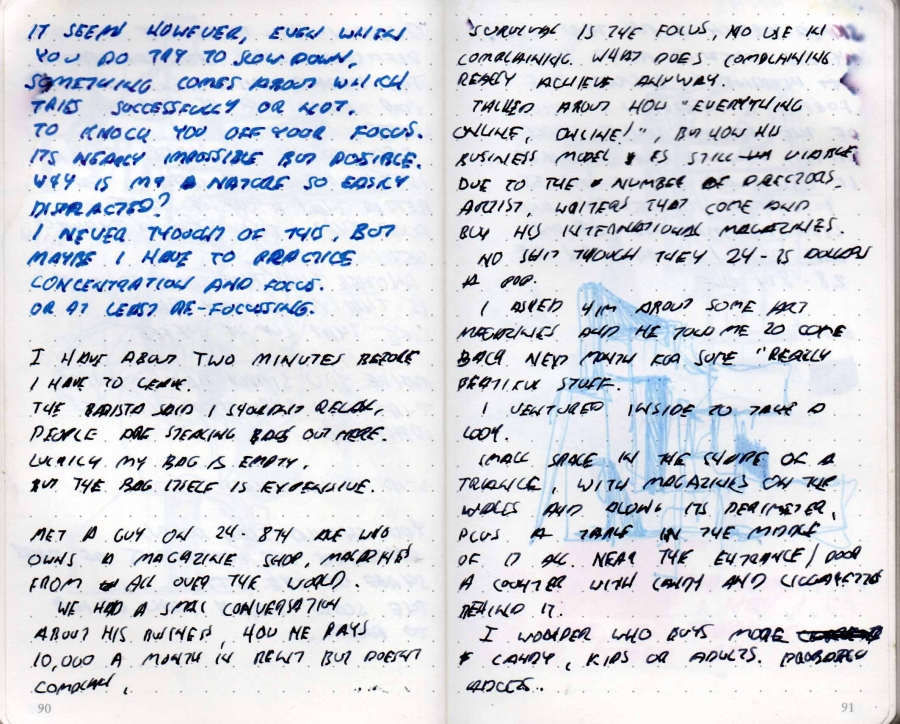 IT SEEM HOWEVER, EVEN WHEN
YOU DO TRY TO SLOW DOWN,
SOMETHING COMES ABOUT WHICH
TRIES SUCCESSFULLY OR NOT.
TO KNOCK YOU OFF YOUR FOCUS.
ITS NEARLY IMPOSSIBLE BUT POSSIBLE.
WHY IS MY NATURE SO EASILY
DISTRACTED?
I NEVER THOUGHT OF THIS, BUT
MAYBE I HAVE TO PRACTICE
CONCENTRATION AND FOCUS.
OR AT LEAST RE-FOCUSSING.
I HAVE ABOUT TWO MINUTES BEFORE
I HAVE TO LEAVE.
THE BARISTA SAID I SHOULDNT RELAX,
PEOPLE ARE STEALING BAGS OUT HERE.
LUCKILY MY BAG IS EMPTY,
BUT THE BAG ITSELF IS EXPENSIVE.
MET A GUY ON 24 - 8TH AVE WHO
OWNS A MAGAZINE SHOP, MAGAZINES
FROM ALL OVER THE WORLD.
WE HAD A SMALL CONVERSATION
ABOUT HIS BUSINESS, HOW HE PAYS
10,000 A MONTH IN RENT BUT DOESNT
COMPLAIN,
90
SURVIVAL IS THE FOCUS, NO USE IN
COMPLAINING. WHAT DOES COMPLAINING
REALLY ACHIEVE ANYWAY.
TALKED ABOUT HOW "EVERYTHING
ONLINE, ONLINE!", BUT HOW HIS
BUSINESS MODEL IS STILL VIABLE
DUE TO THE NUMBER OF DIRECTORS,
ARTIST, WRITERS THAT COME AND
BUY HIS INTERNATIONAL MAGAZINES.
NO SHIT THOUGH THEY 24-75 DOLLARS
A POP.
I ASKED HIM ABOUT SOME ART
MAGAZINES AND HE TOLD ME TO COME
BACK NEXT MONTH FOR SOME "REALLY
BEATIFUL STUFF.
I VENTURED INSIDE TO TAKE A
LOOK.
SMALL SPACE IN THE SHAPE OF A
TRIANGLE, WITH MAGAZINES ON THE
WALLS AND ALONG ITS PERIMETER,
PLUS A TABLE IN THE MIDDLE
OF IT ALL NEAR THE ENTRANCE/DOOR
A COUNTER WITH CANDY AND CIGGARETTES
BEHIND IT.
I WONDER WHO BUYS MORE
CANDY, KIDS OR ADULTS. PROBABLY
ADULTS..
91